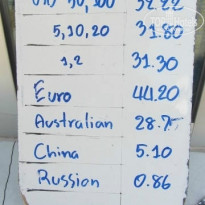 50, 100 32.22
5,10,20 31.80
1,2 31.30
Euro 44.20
Australian 28.75
China 5.10
Russion 0.86